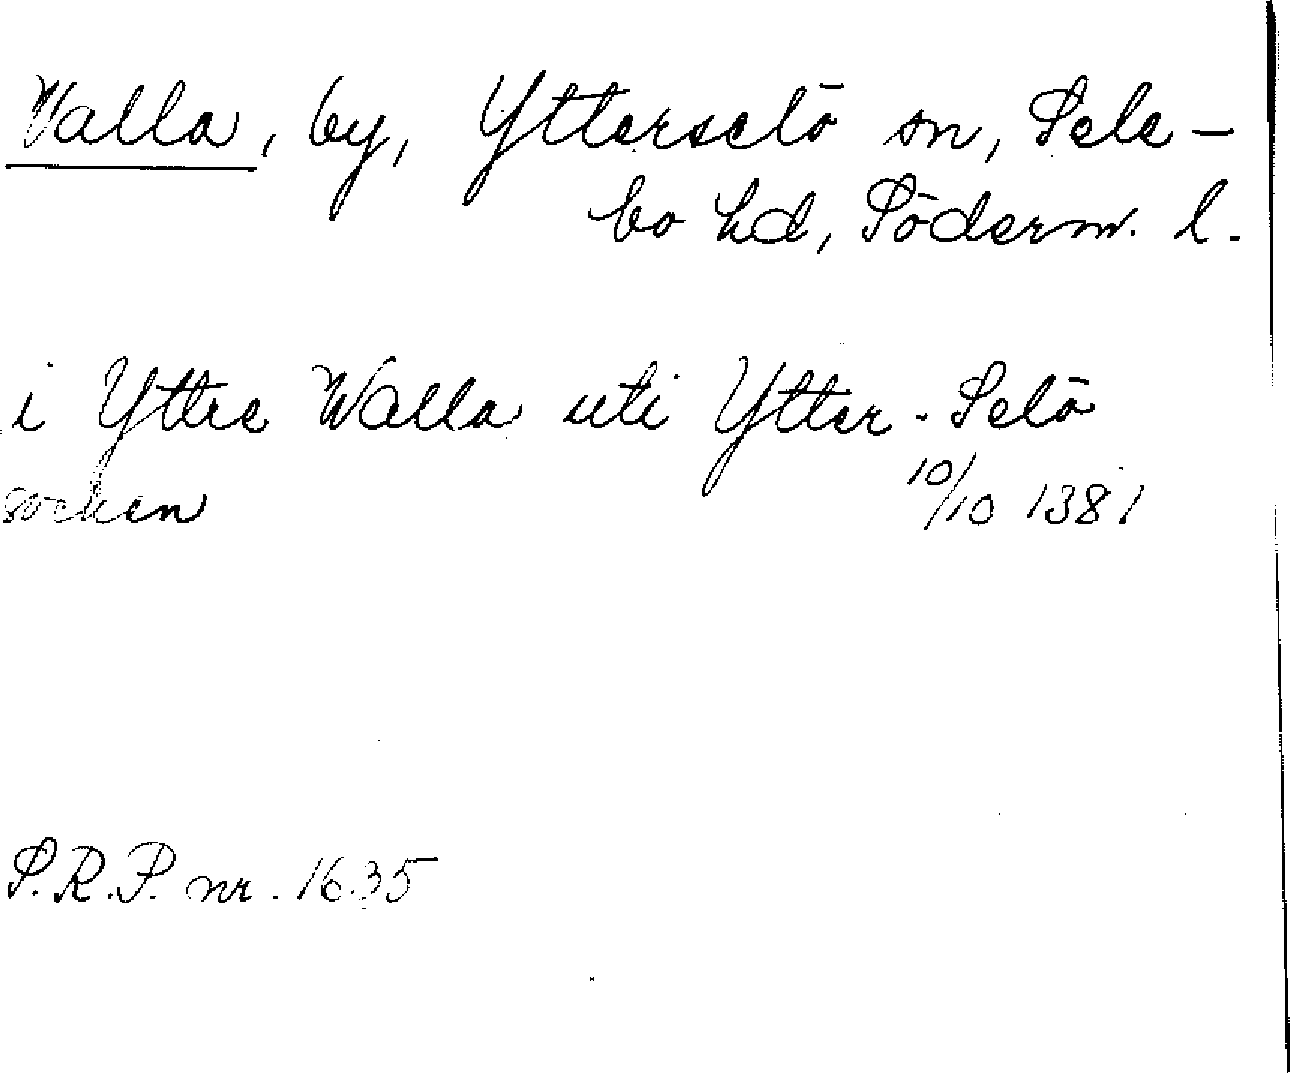 Valla, by, Ytterselö sn, Sele-
bo hd, Söderm. l.
i Yttre Walla uti Ytter-Selö
socken 10/10 1381
S.R.P. nr. 1635